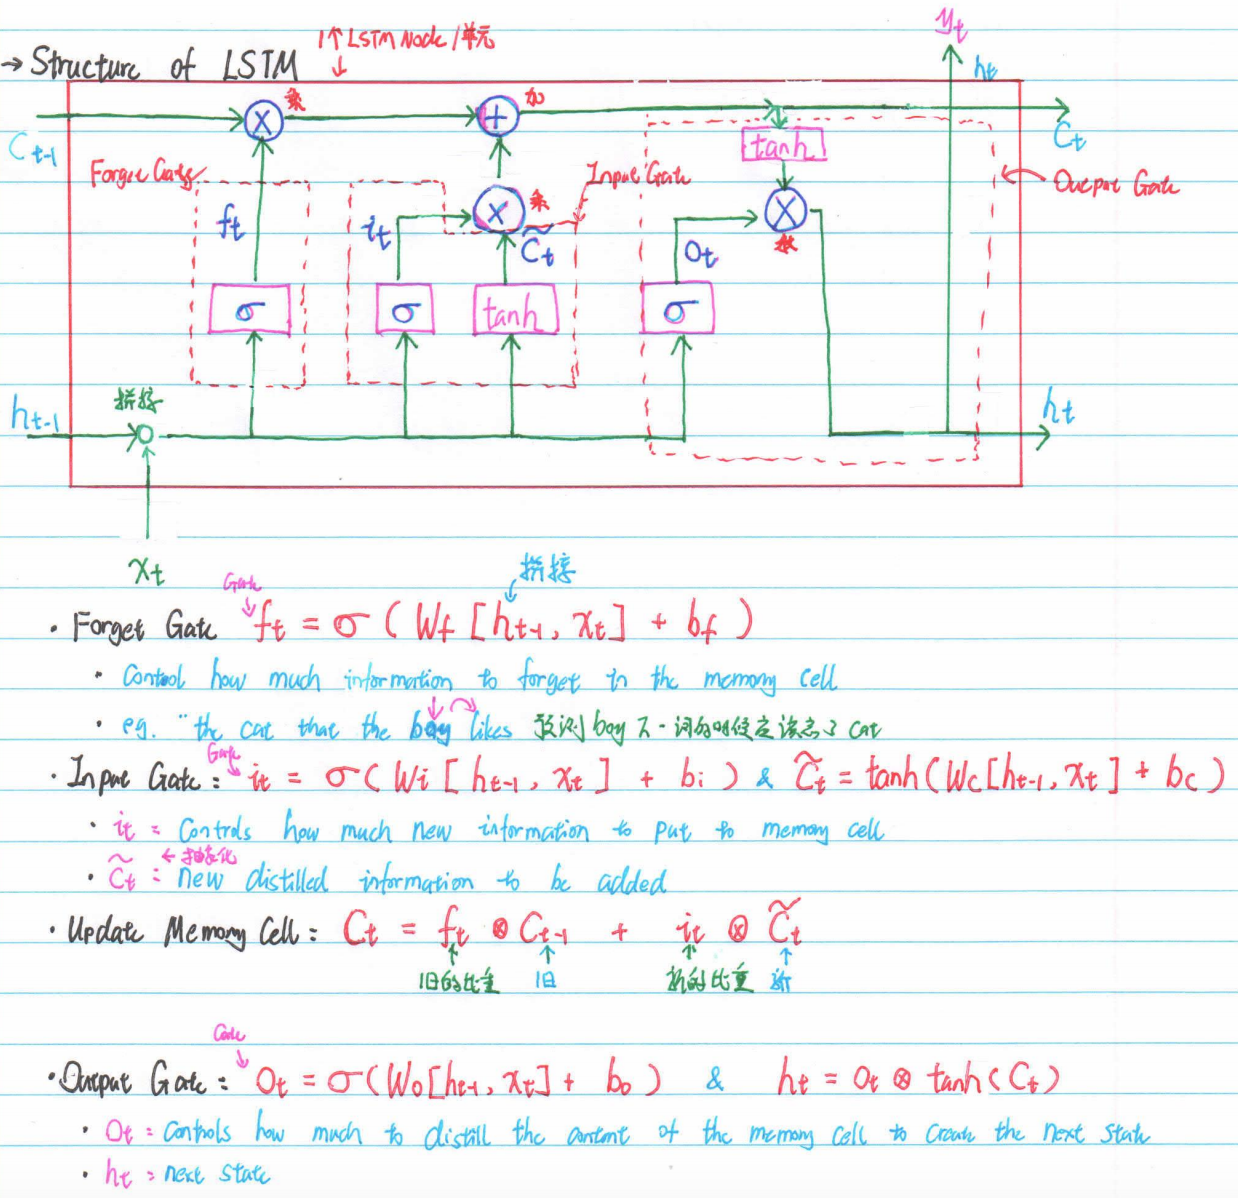 → Structure of LSTM
1个LSTM Node/单元
yt
ht
乘
加
Ct-1
Ct
tanh
Forget Gate
Input Gate
Output Gate
ft
it
乘
C̃t
Ot
乘
σ
σ
tanh
σ
拼接
ht-1
ht
xt
拼接
Gate
· Forget Gate ft = σ ( Wf [ ht-1, xt ] + bf )
· Control how much information to forget in the memory cell
· eg. "the cat that the boy likes 预测 boy 下一词的时候应该忘了 cat
Gate
· Input Gate: it = σ ( Wi [ ht-1, xt ] + bi ) & C̃t = tanh ( Wc [ ht-1, xt ] + bc )
· it = Controls how much new information to put to memory cell
← 抽象化
· C̃t = new distilled information to be added
· Update Memory Cell: Ct = ft ⊗ Ct-1 + it ⊗ C̃t
旧的比重 旧 新的比重 新
Gate
· Output Gate: Ot = σ ( Wo [ ht-1, xt ] + bo ) & ht = Ot ⊗ tanh ( Ct )
· Ot = Controls how much to distill the content of the memory cell to create the next state
· ht = next state